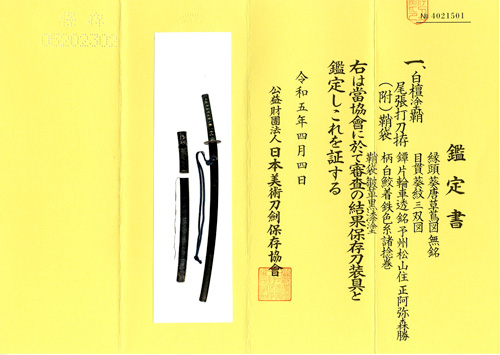 № 4021501
鑑定書
一、白檀塗鞘
尾張打刀拵
(附)鞘袋
縁頭葵唐草蔦図無銘
目貫葵紋三双図
鐔片輪車透銘予州松山住正阿弥森勝
柄白鮫着鉄色糸諸捻巻
鞘袋皺革黒漆塗
右は當協會に於て審査の結果保存刀装具と
鑑定しこれを証する
令和五年四月四日
公益財團法人日本美術刀剣保存協會
05202302